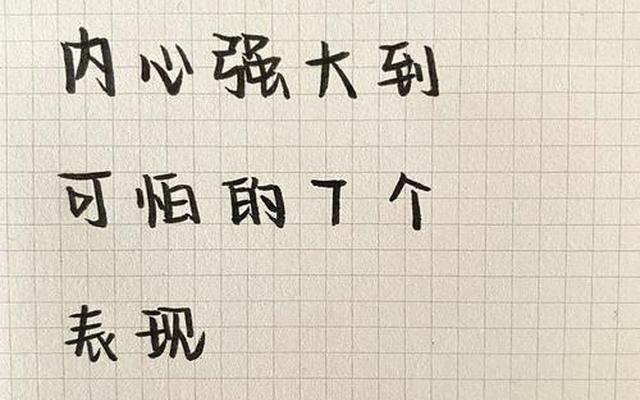 内心强大到
可怕的7个
表现